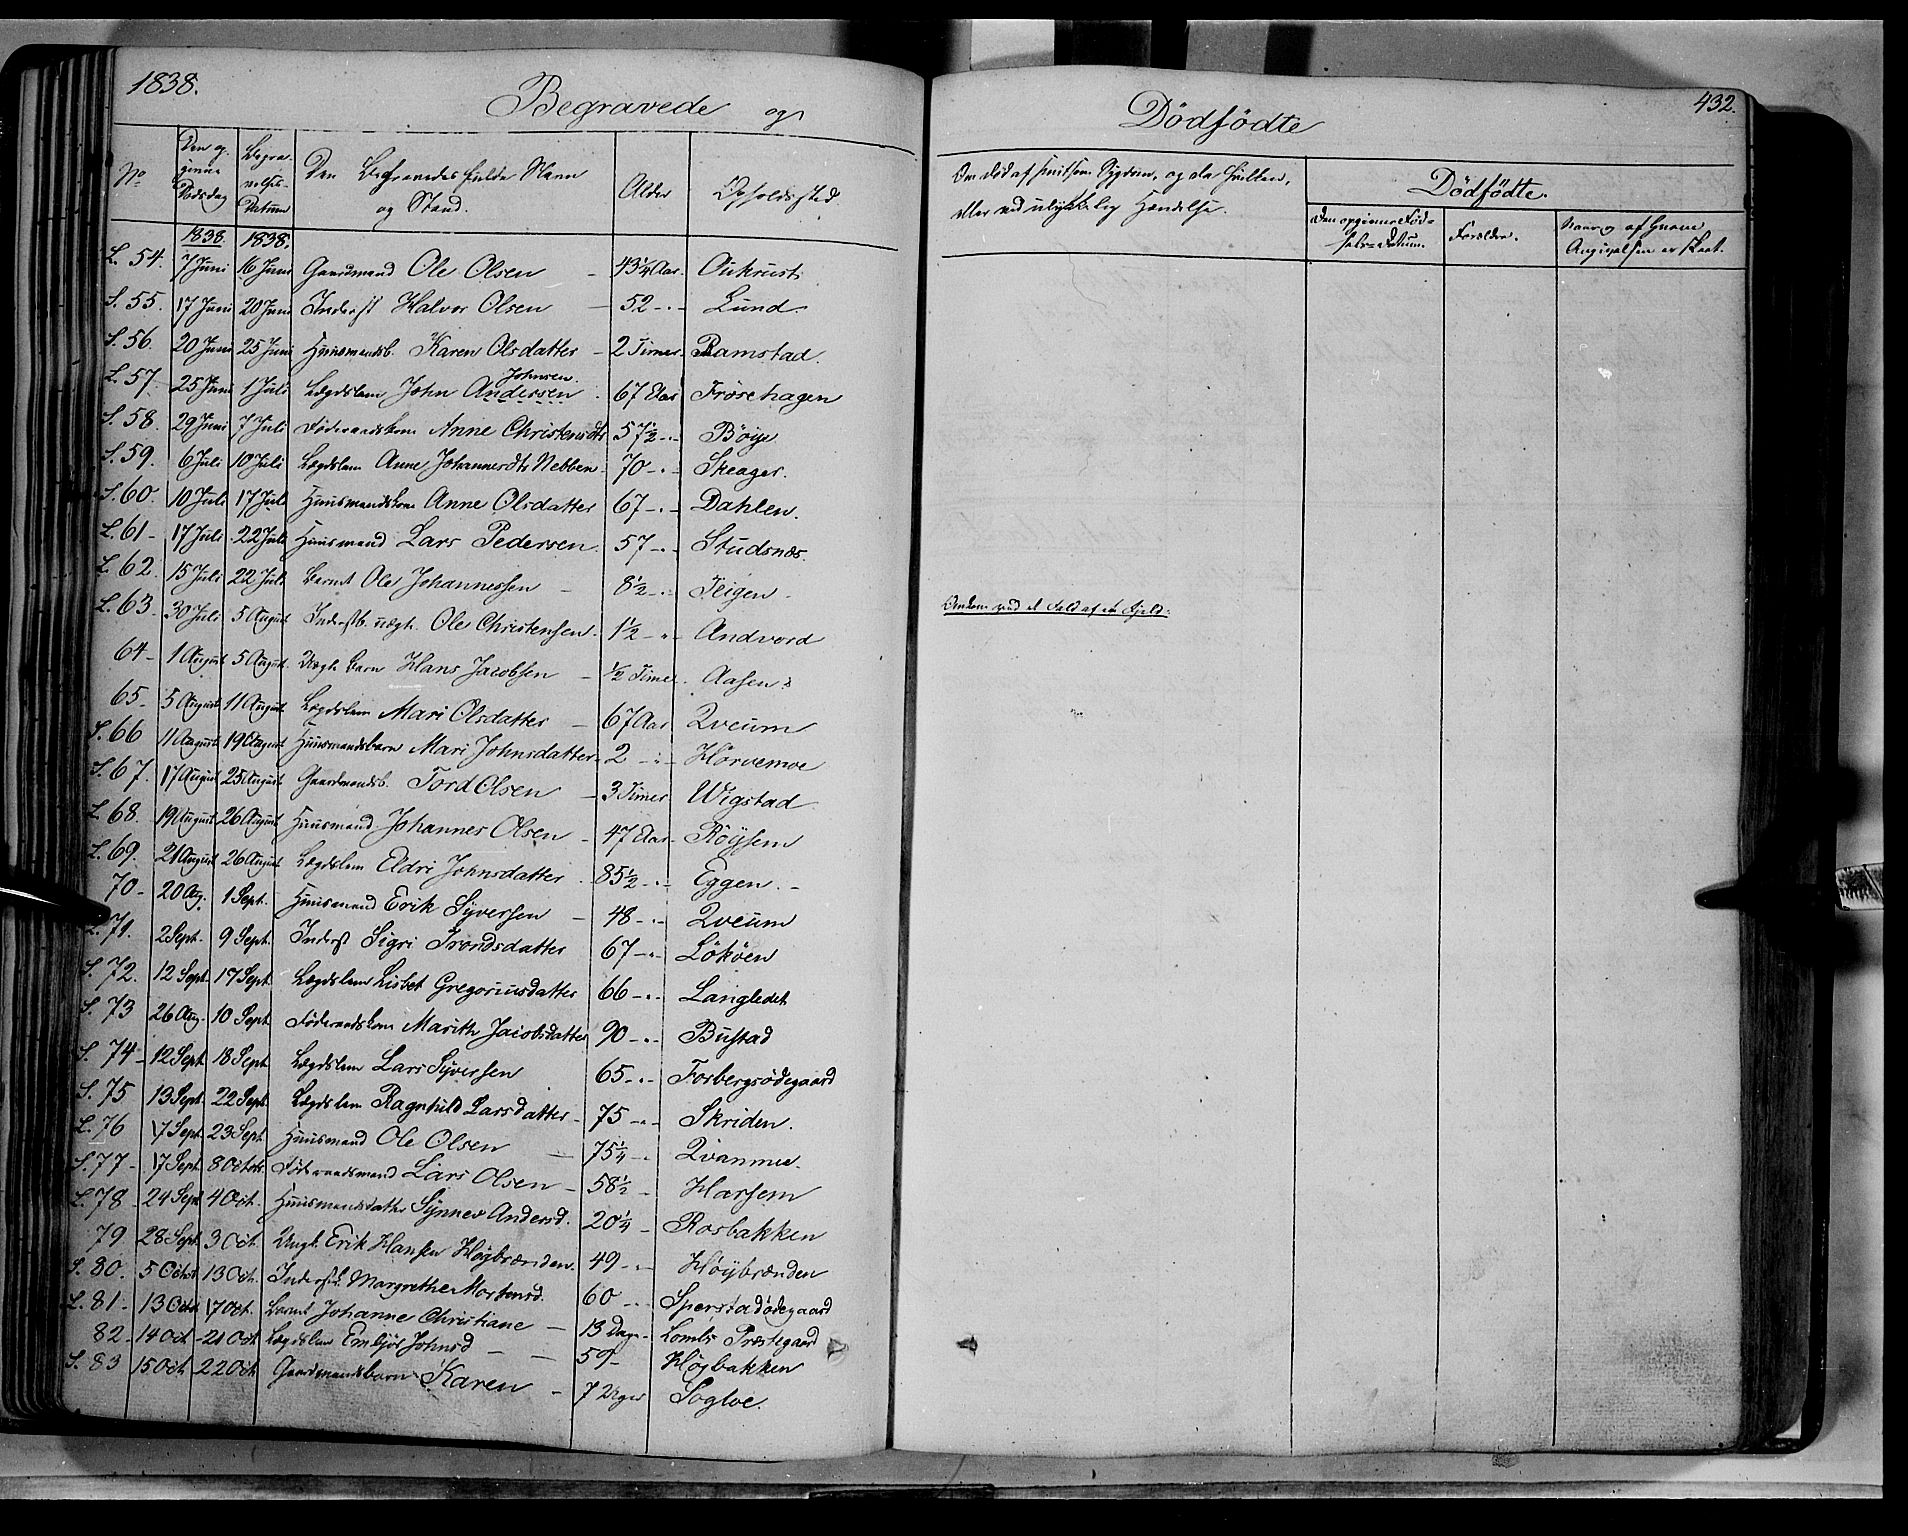 1838.
Begravede og
Dödfödte
432.
No
Den og-
givne
Dödsdag
Begra-
velses-
Datum
Den Begravedes fulde Navn
og Stand.
Alder
Opholdssted.
Om død af smitsom Sygdom, og da hvilken,
eller ved ulykkelig Hændelse.
Dödfödte.
Den opgivne Fød-
sels-Datum.
Forældre.
Naar og af hvem
Angivelsen er skeet.
1838. 1838.
L. 54. 7 Juni 16 Juni Gaardmand Ole Olsen – 43 1/4 Aar. Oukrust.
S. 55. 17 Juni 20 Juni Inderst Halvor Olsen – 52 -"- Lund.
S. 56. 20 Juni 25 Juni Huusmandsb. Karen Olsdatter – 2 Timer. Ramstad.
Johnsen.
L. 57. 25 Juni 1 Juli Lægdslem John Andersen. 67 Aar Frösehagen
S. 58. 29 Juni 7 Juli Föderaadskone Anne Christensdtr 57 1/2 -"- Böye
S. 59. 6 Juli 10 Juli Lægdslem Anne Johannesdtr Nebben. 70 -"- Skeager.
S. 60. 10 Juli 17 Juli Huusmandskone Anne Olsdatter 67 -"- Dahlen.
L. 61 - 17 Juli 22 Juli Huusmand Lars Pedersen. 57 -"- Studsnæs.
L. 62. 15 Juli 22 Juli Barnet Ole Johannessen – 8 1/2 -"- Teigen -
Omkom ved et Fald af et Fjeld.
L. 63. 30 Juli 5 August Inderstb. uægt. Ole Christensen. 1 1/2 -"- Andvord
64 - 1 August 5 August Uægte Barn Hans Jacobsen – 1/2 Time. Aasen
65 - 5 August 11 August Lægdslem Mari Olsdatter – 67 Aar Qveum
S. 66 11 August 19 August Huusmandsbarn Mari Johnsdatter. 2 -"- Hörvemoe
S. 67. 17 August 25 August Gaardmandsb. Tord Olsen – 3 Timer Wigstad.
L. 68. 19 August 26 August Huusmand Johannes Olsen – 47 Aar. Röysem
L. 69. 21 August 26 August Lægdslem Eldri Johnsdatter. 85 1/2 -"- Eggen. -
70 - 20 Aug. 1 Sept. Huusmand Erik Syversen – 48 -"- Qveum
L. 71. 2 Sept. 9 Sept. Inderst Sigri Trondsdatter 67 -"- Lököen
S. 72. 12 Sept. 17 Sept. Lægdslem Lisbet Gregoriusdatter 66 -"- Langledet
S. 73 26 Aug. 10 Sept. Föderaadskone Marith Jacobsdatter 90 -"- Bustad
S. 74 - 12 Sept. 18 Sept. Lægdslem Lars Syversen 65 -"- Forbergsödegaard
S. 75 13 Sept. 22 Sept. Lægdslem Ragnhild Larsdatter - 75 -"- Skriden.
L. 76 17 Sept. 23 Sept. Huusmand Ole Olsen – 75 1/4 - Qvanme.
S. 77 - 17 Sept. 8 Octob. Föderaadsmand Lars Olsen – 58 1/2 - Harsem
L. 78 - 24 Sept. 4 Oct. Huusmandsdatter Synnev Andersd. 20 1/4 - Rosbakken
79 28 Sept. 3 Oct. Ungk. Erik Hansen Höybrænden. 49 -"- Höybrænden
S. 80. 5 Octob. 13 Oct. Inderstk. Margrethe Mortensd. 60 - Sperstadödegaard
L. 81 - 13 Octob. 17 Oct. Barnet Johanne Christiane – 13 Dage - Lomb Præstegaard
82 - 14 Oct - 21 Oct. Lægdslem Embjör Johnsd – 59 - Högbakken
S. 83 15 Oct. 22 Oct. Gaardmandsbarn Karen – 7 Uger Sogloe.